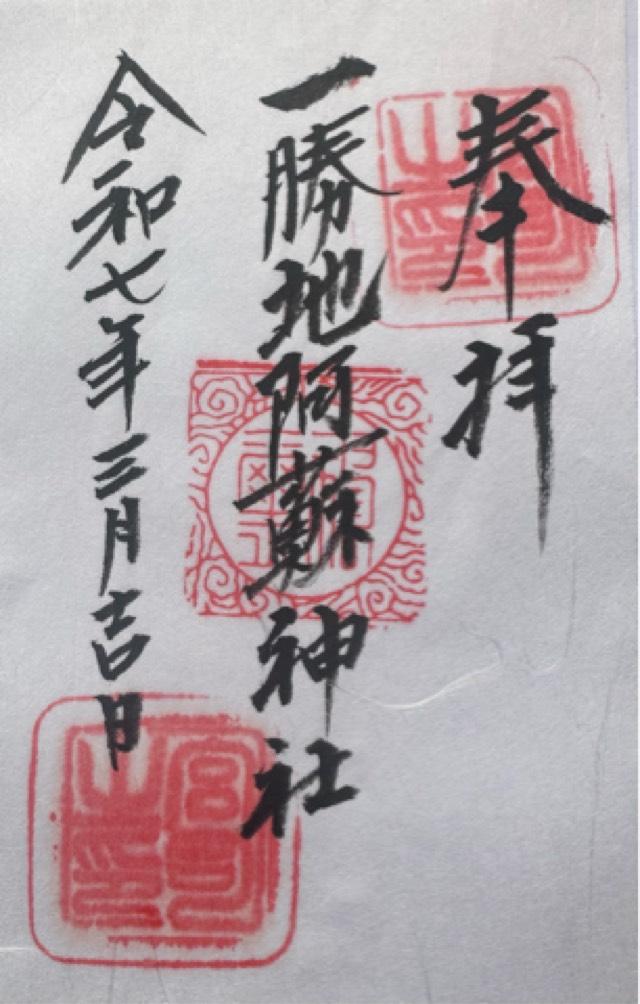 奉拝
一勝地阿蘇神社
令和七年三月吉日